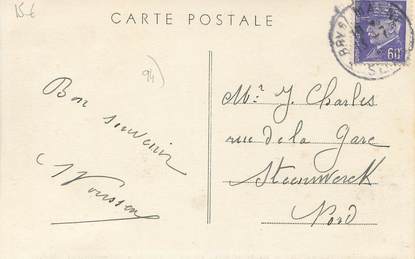 15€
CARTE POSTALE
BRY S/ MARNE
60ᶜ
94)
Bon souvenir
Mr. J. Charles
rue de la Gare
Steenwerck
Nord